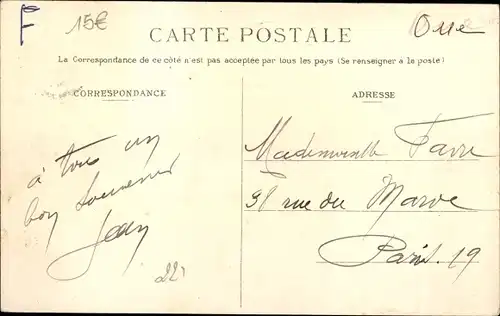 F
15€
Orne
CARTE POSTALE
La Correspondance de ce côté n'est pas acceptée par tous les pays (Se renseigner à la poste)
CORRESPONDANCE
ADRESSE
à tous un
bon souvenir
Jean
Mademoiselle Favre
38 rue du Maroc
Paris. 19